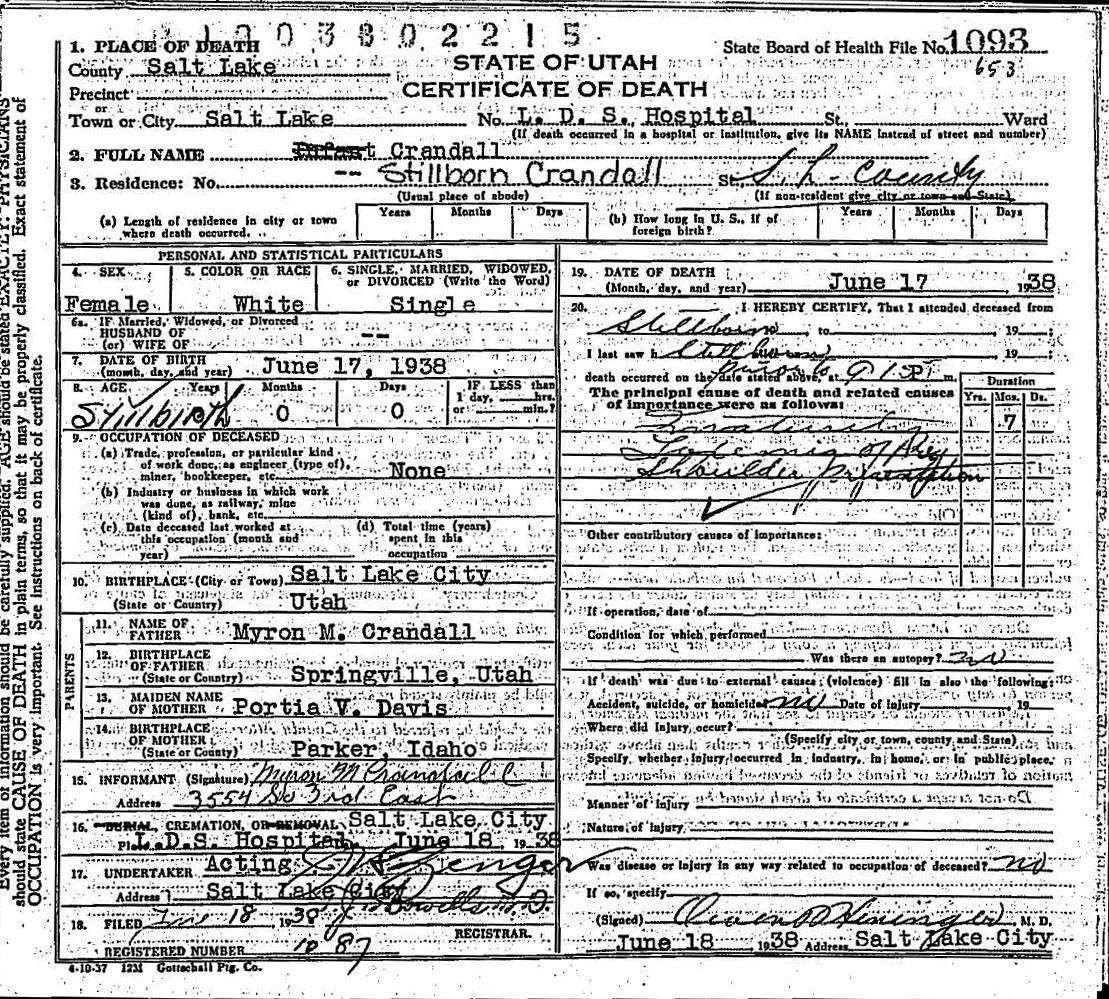 1003802215
1. PLACE OF DEATH
State Board of Health File No. 1093
County Salt Lake
STATE OF UTAH
653
Precinct
CERTIFICATE OF DEATH
or
Town or City Salt Lake No. L. D. S. Hospital St., Ward
(If death occurred in a hospital or institution, give its NAME instead of street and number)
2. FULL NAME Infant Crandall
-- Stillborn Crandall
3. Residence: No. St. S. L. County
(Usual place of abode) (If non-resident give city or town and State)
(a) Length of residence in city or town where death occurred. Years Months Days
(b) How long in U. S., if of foreign birth? Years Months Days
PERSONAL AND STATISTICAL PARTICULARS
4. SEX 5. COLOR OR RACE 6. SINGLE, MARRIED, WIDOWED, or DIVORCED (Write the Word)
Female White Single
6a. IF Married, Widowed, or Divorced
HUSBAND OF
(or) WIFE OF --
7. DATE OF BIRTH
(month, day, and year) June 17, 1938
8. AGE Years Months Days IF LESS than 1 day, hrs. or min.?
Stillbirth 0 0 0
9. OCCUPATION OF DECEASED
(a) Trade, profession, or particular kind
of work done, as engineer (type of),
miner, bookkeeper, etc. None
(b) Industry or business in which work
was done, as railway, mine
(kind of), bank, etc.
(c) Date deceased last worked at
this occupation (month and
year)
(d) Total time (years)
spent in this
occupation
10. BIRTHPLACE (City or Town) Salt Lake City
(State or Country) Utah
PARENTS
11. NAME OF FATHER Myron M. Crandall
12. BIRTHPLACE OF FATHER
(State or Country) Springville, Utah
13. MAIDEN NAME OF MOTHER Portia V. Davis
14. BIRTHPLACE OF MOTHER
(State or County) Parker, Idaho
15. INFORMANT (Signature) Myron M Crandall
Address 3554 So 3rd East
16. BURIAL, CREMATION, OR REMOVAL Salt Lake City
Place L.D.S. Hospital June 18 1938
17. UNDERTAKER Acting
Address Salt Lake City
18. FILED June 18 1938 M.D.
REGISTRAR.
REGISTERED NUMBER 1087
4-10-37 12M Gottschall Ptg. Co.
19. DATE OF DEATH
(Month, day, and year) June 17 1938
20. I HEREBY CERTIFY, That I attended deceased from
Stillborn to 19
I last saw h Stillborn 19
death occurred on the date stated above, at 9:15P m.
prior to
The principal cause of death and related causes
of importance were as follows:
Duration
Yrs. Mos. Ds.
7
Toxemia of Preg
Shoulder Presentation
Other contributory causes of importance:
If operation, date of
Condition for which performed
Was there an autopsy? no
If death was due to external causes (violence) fill in also the following:
Accident, suicide, or homicide no Date of injury 19
Where did injury occur?
(Specify city or town, county and State)
Specify, whether injury occurred in industry, in home, or in public place.
Manner of Injury
Nature of Injury
Was disease or injury in any way related to occupation of deceased? no
If so, specify
(Signed) M. D.
June 18 1938 Address Salt Lake City
Every item of information should be carefully supplied. AGE should be stated EXACTLY. PHYSICIANS
should state CAUSE OF DEATH in plain terms, so that it may be properly classified. Exact statement of
OCCUPATION is very important. See instructions on back of certificate.